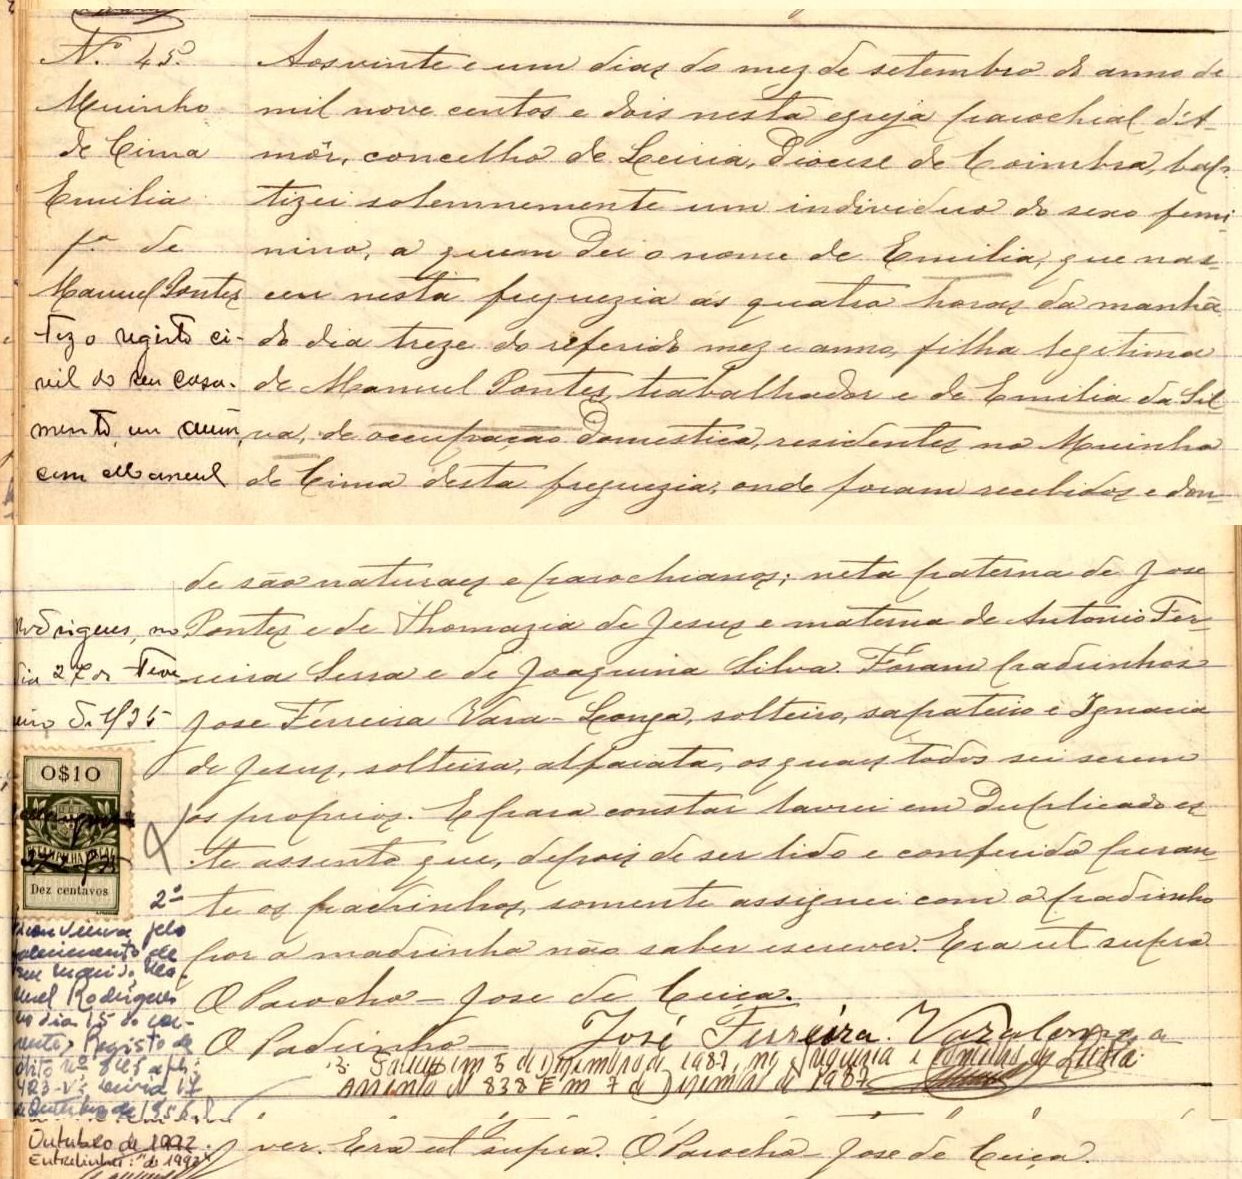 N.º 45.
Muinho
de Cima
Emilia
f.ª de
Manuel Pontes
Fez o registo ci-
vil do seu casa-
mento, em
com Manuel
Aos vinte e um dias do mez de setembro do anno de
mil nove centos e dois nesta egreja parochial d'A-
môr, concelho de Leiria, Diocese de Coimbra, bap-
tizei solemnemente um individuo do sexo femi-
nino, a quem dei o nome de Emilia, que nas-
ceu nesta freguezia ás quatro horas da manhã
do dia treze do referido mez e anno, filha legitima
de Manuel Pontes, trabalhador e de Emilia da Sil
va, de occupação domestica, residentes no Muinho
de Cima desta freguezia, onde foram recebidos e don-
de são naturaes e parochianos; neta paterna de Jose
Pontes e de Thomazia de Jesus e materna de Antonio Fer-
reira Serra e de Joaquina Silva. Foram padrinhos
Jose Ferreira Vara-Longa, solteiro, sapateiro e Ignacia
de Jesus, solteira, alfaiata, os quaes todos sei serem
os proprios. E para constar lavrei em duplicado es-
te assento que, depois de ser lido e conferido peran-
te os padrinhos, somente assignei com o padrinho
por a madrinha não saber escrever. Era ut supra
O Parocho – Jose de Ceiça.
O Padrinho – José Ferreira Varalonga
3. Faleceu em 5 de Dezembro de 1987, na freguesia e concelho de Leiria.
Assento nº 838 Em 7 de Dezembro de 1987
Rodrigues, no
dia 27 de Feve
reiro de 1935
0$10
ESTAMPILHA FISCAL
Dez centavos
2º
viúva pelo
falecimento de
seu marido Ma-
nuel Rodrigues
no dia 15 do cor-
rente, Registo de
óbito nº 825 a fls.
423-vº. Leiria 17
de Outubro de 1956
Outubro de 1992.
Entrelinhei: "de 1992"
ver. Era ut supra. O Parocho Jose de Ceiça.